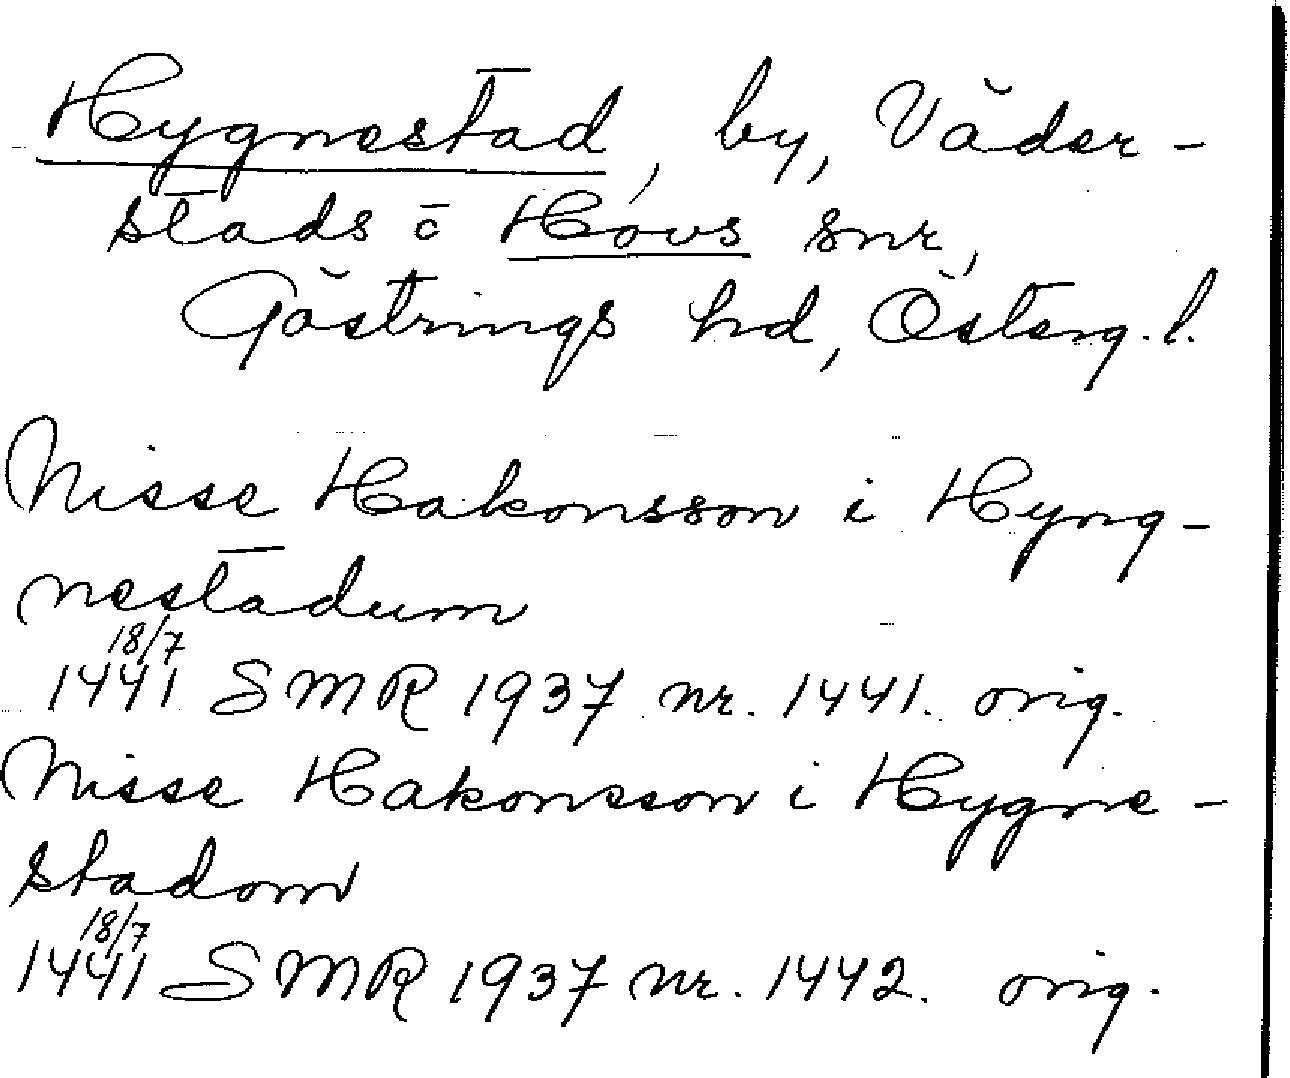 Hygnestad, by, Väder-
stads o Hovs snr,
Göstrings hd, Österg.l.
Nisse Hakonsson i Hyng-
nestadum
18/7
1441 SMR 1937 nr. 1441. orig.
Nisse Hakonsson i Hygne-
stadom
18/7
1441 SMR 1937 nr. 1442. orig.